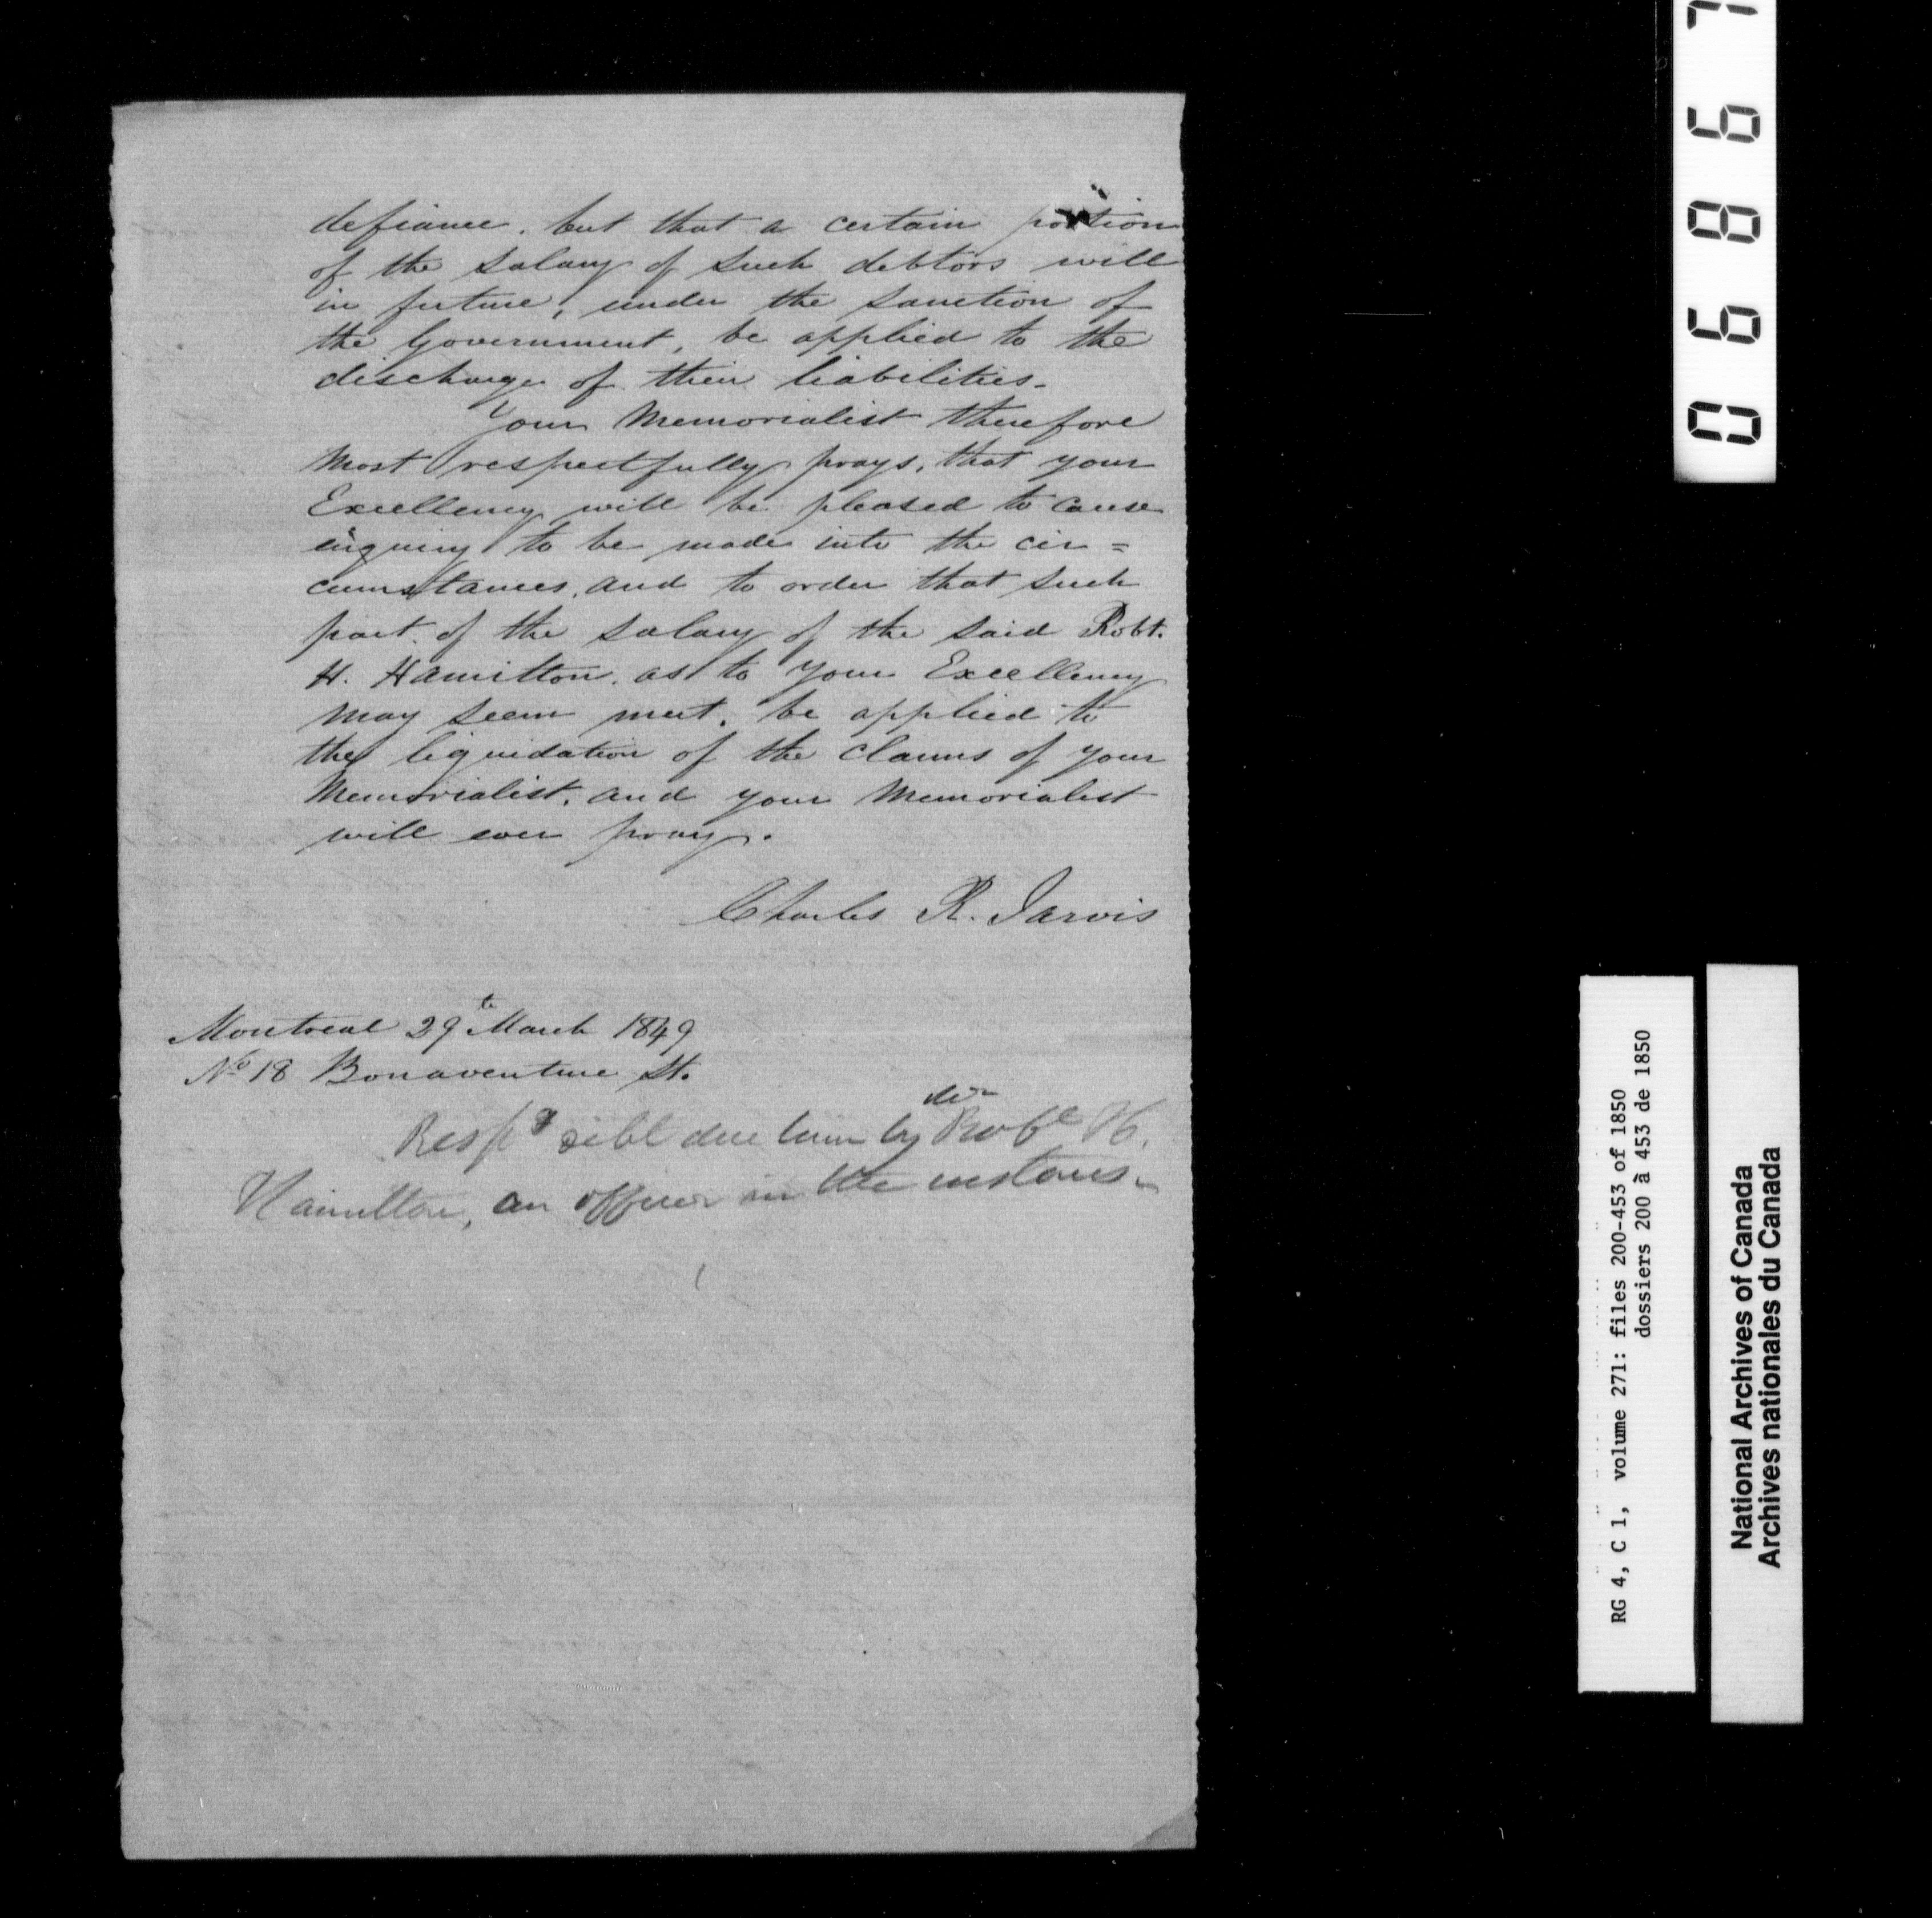 defiance, but that a certain portion
of the salary of such debtors will
in future, under the sanction of
the Government, be applied to the
discharge of their liabilities.
Your Memorialist therefore
most respectfully prays, that your
Excellency will be pleased to cause
inquiry to be made into the cir=
cumstances, and to order that such
part of the salary of the said Robt.
H. Hamilton, as to your Excellency
may seem meet, be applied to
the liquidation of the claims of your
Memorialist, and your Memorialist
will ever pray.
Charles R. Jarvis
Montreal 29th March 1849
No 18 Bonaventure St.
Respg debt due him by Robt H.
Hamilton, an officer in the customs.
06867
RG 4, C 1, volume 271: files 200-453 of 1850
dossiers 200 à 453 de 1850
National Archives of Canada
Archives nationales du Canada